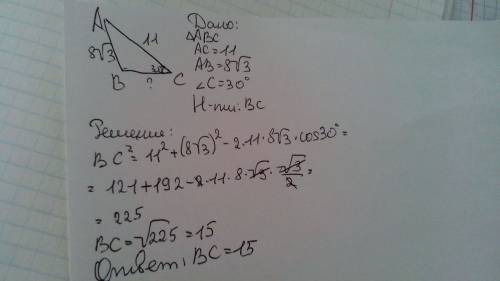 A
8√3
11
30°
B
?
C
Дано:
△ABC
AC=11
AB=8√3
∠C=30°
Н-ти: BC
Решение:
BC²=11²+(8√3)²-2·11·8√3·cos30°=
=121+192-2·11·8·√3·√3/2=
=225
BC=√225=15
Ответ: BC=15